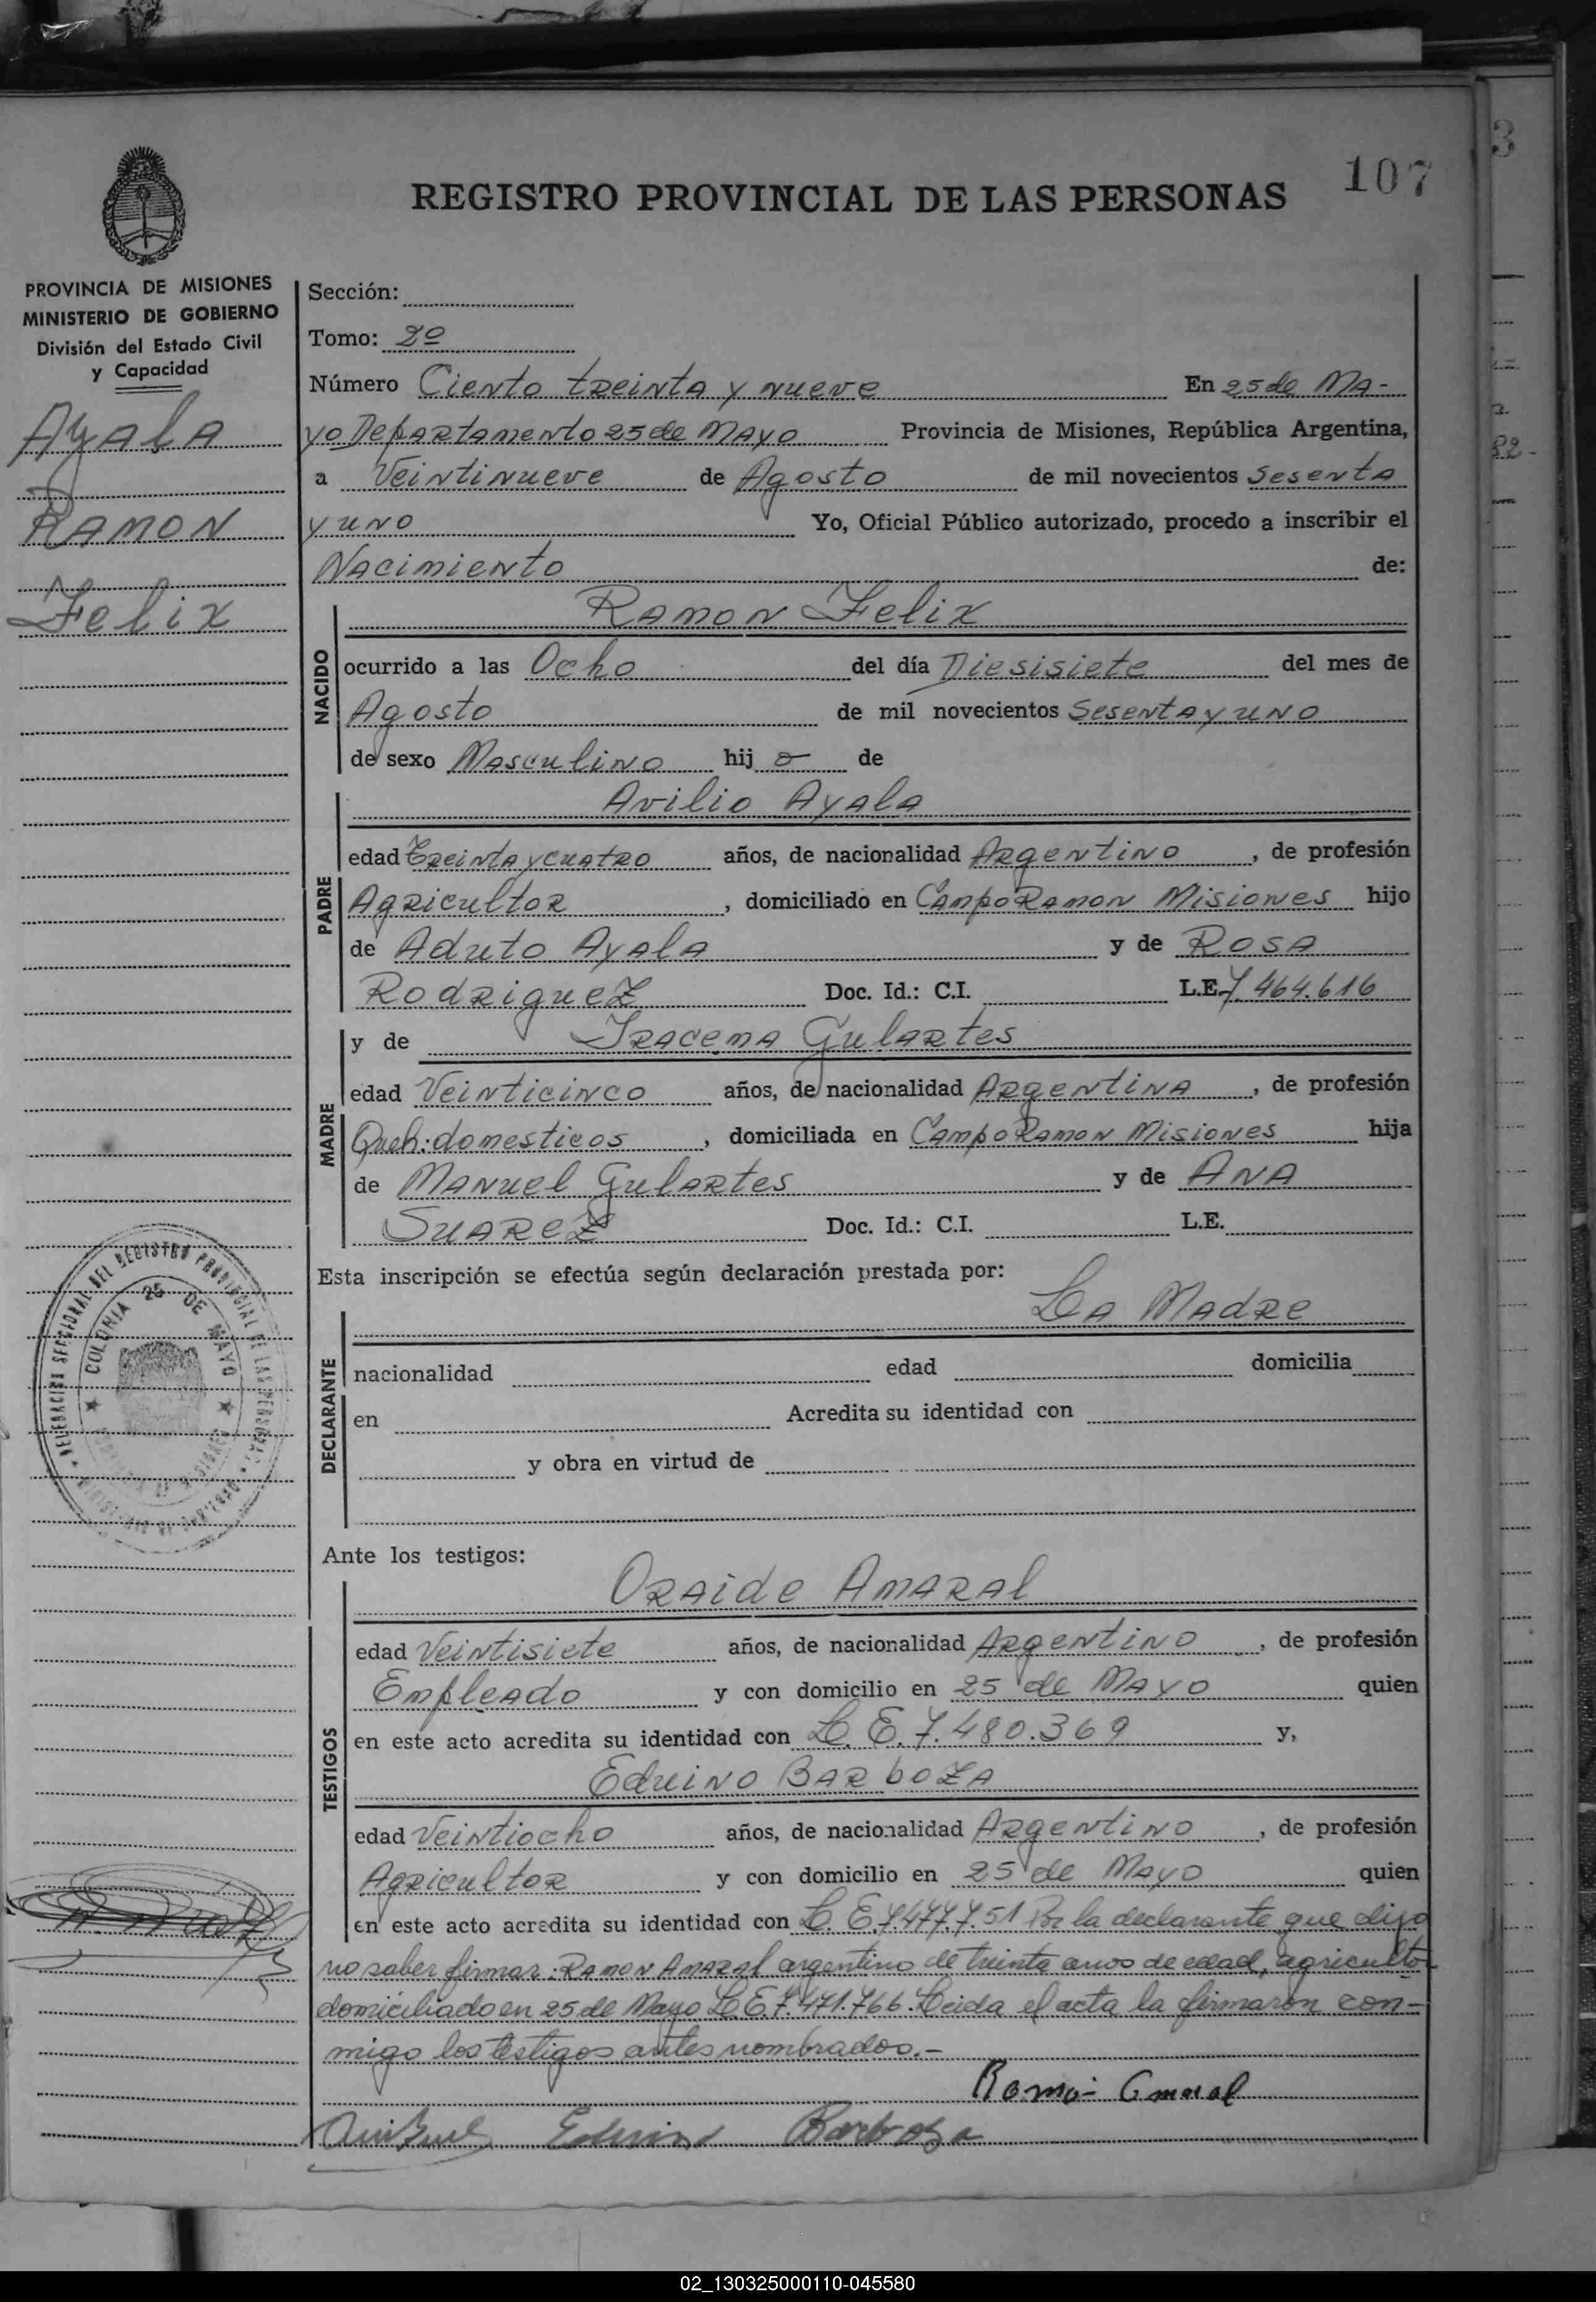 3
107
REGISTRO PROVINCIAL DE LAS PERSONAS
PROVINCIA DE MISIONES
MINISTERIO DE GOBIERNO
División del Estado Civil
y Capacidad
Ayala
Ramon
Felix
Sección:
Tomo: 2º
Número Ciento treinta y nueve En 25 de Ma-
yo Departamento 25 de Mayo Provincia de Misiones, República Argentina,
a Veintinueve de Agosto de mil novecientos Sesenta
y uno Yo, Oficial Público autorizado, procedo a inscribir el
Nacimiento de:
Ramon Felix
NACIDO
ocurrido a las Ocho del día Diesisiete del mes de
Agosto de mil novecientos Sesenta y uno
de sexo Masculino hijo de
Avilio Ayala
PADRE
edad Treinta y cuatro años, de nacionalidad Argentino, de profesión
Agricultor, domiciliado en Campo Ramon Misiones hijo
de Aduto Ayala y de Rosa
Rodriguez Doc. Id.: C.I. L.E. 7.464.616
y de Iracema Gulartes
MADRE
edad Veinticinco años, de nacionalidad Argentina, de profesión
Queh: domesticos, domiciliada en Campo Ramon Misiones hija
de Manuel Gulartes y de Ana
Suarez Doc. Id.: C.I. L.E.
Esta inscripción se efectúa según declaración prestada por:
La Madre
DECLARANTE
nacionalidad edad domicilia
en Acredita su identidad con
y obra en virtud de
COLONIA 25 DE MAYO
Ante los testigos:
Oraide Amaral
TESTIGOS
edad Veintisiete años, de nacionalidad Argentino, de profesión
Empleado y con domicilio en 25 de Mayo quien
en este acto acredita su identidad con L.E. 7.480.369 y,
Eduino Barboza
edad Veintiocho años, de nacionalidad Argentino, de profesión
Agricultor y con domicilio en 25 de Mayo quien
en este acto acredita su identidad con L.E 7.477.751 Por la declarante que dijo
no saber firmar: Ramon Amaral argentino de treinta anos de edad, agricultor
domiciliado en 25 de Mayo L.E. 7.471.766. Leida el acta la firmaron con-
migo los testigos antes nombrados.-
Ramon Amaral
Eduino Barboza
02_130325000110-045580